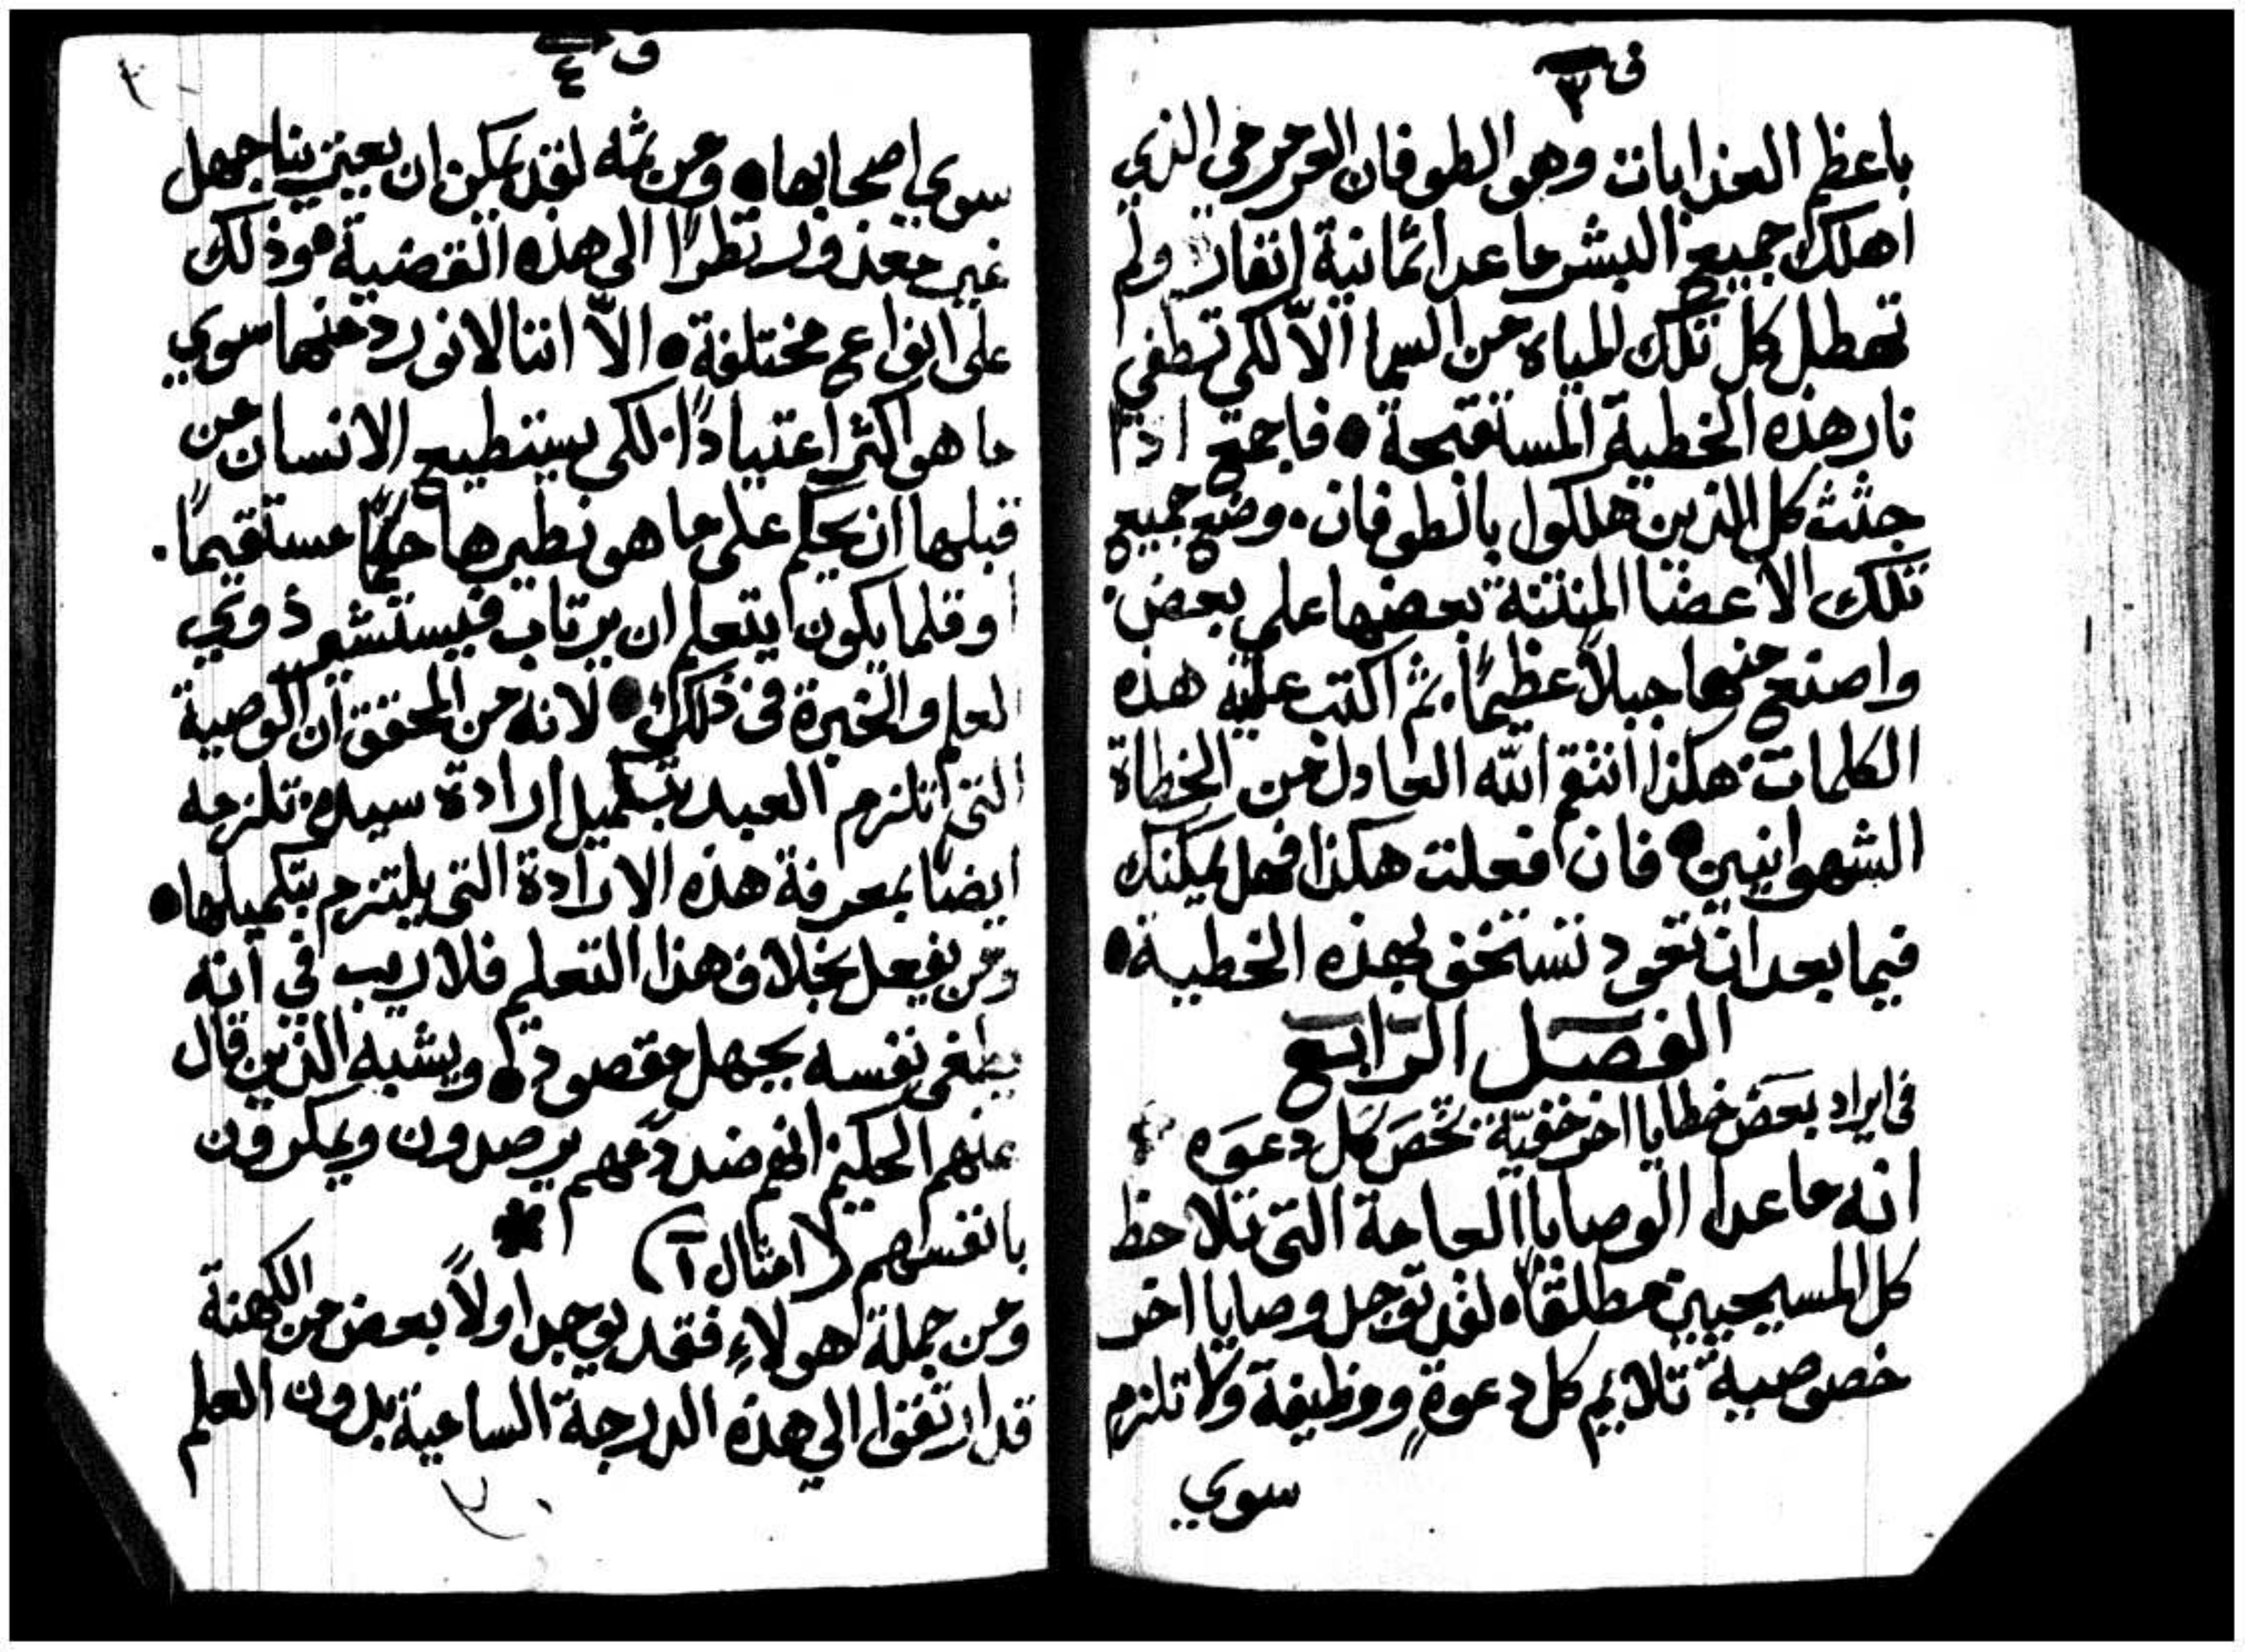 ف ٣
باعظم العذابات وهو الطوفان العرمرمي الذي
اهلك جميع البشر ما عدا ثمانية انفار ولم
تهطل كل تلك المياه من السما الاّ لكي تطفي
نار هذه الخطية المستقبحة ● فاجمع اذًا
جثث كل الذين هلكوا بالطوفان. وضع جميع
تلك الاعضا المنتنة بعضها علي بعض.
واصنع منها جبلاً عظيمًا. ثم اكتب عليه هذه
الكلمات. هكذا انتقم الله العادل من الخطاة
الشهوانيين ● فان فعلت هكذا فهل يمكنك
فيما بعد ان تعود تستخف بهذه الخطية ●
الفصل الرابع
في ايراد بعض خطايا اخر خفيّة تخص كل دعوه
انه ما عدا الوصايا العامة التي تلاحظ
كل المسيحيين مطلقًا. لقد توجد وصايا اخر
خصوصية تلايم كل دعوةٍ ووظيفة ولا تلزم
سوي
ف ٤
سوي اصحابها ● ومن ثمه لقد يمكن ان يعين بنا جهل
غير معذور نظرًا الي هذه القضية. وذلك
علي انواع مختلفة ● الاّ اننا لا نورد منها سوي
ما هو اكثر اعتيادًا. لكي يستطيع الانسان من
قبلها ان يحكم علي ما هو نظيرها حكمًا مستقيمًا.
او قلما يكون يتعلم ان يرتاب فيستشير ذوي
العلم والخبرة في ذلك ● لانه من المحقق ان الوصية
التي تلزم العبد بتكميل ارادة سيده. تلزمه
ايضًا بمعرفة هذه الارادة التي يلتزم بتكميلها ●
ومن يفعل بخلاف هذا التعلم فلا ريب في انه
يطغي نفسه بجهل مقصود ● ويشبه الذين قال
عنهم الحكيم انهم ضد دمهم يرصدون ويمكرون
بانفسهم (امثال ١)
ومن جملة هولاءِ فقد يوجد اولاً بعض من الكهنة
قد ارتقوا الي هذه الدرجة السامية بدون العلم